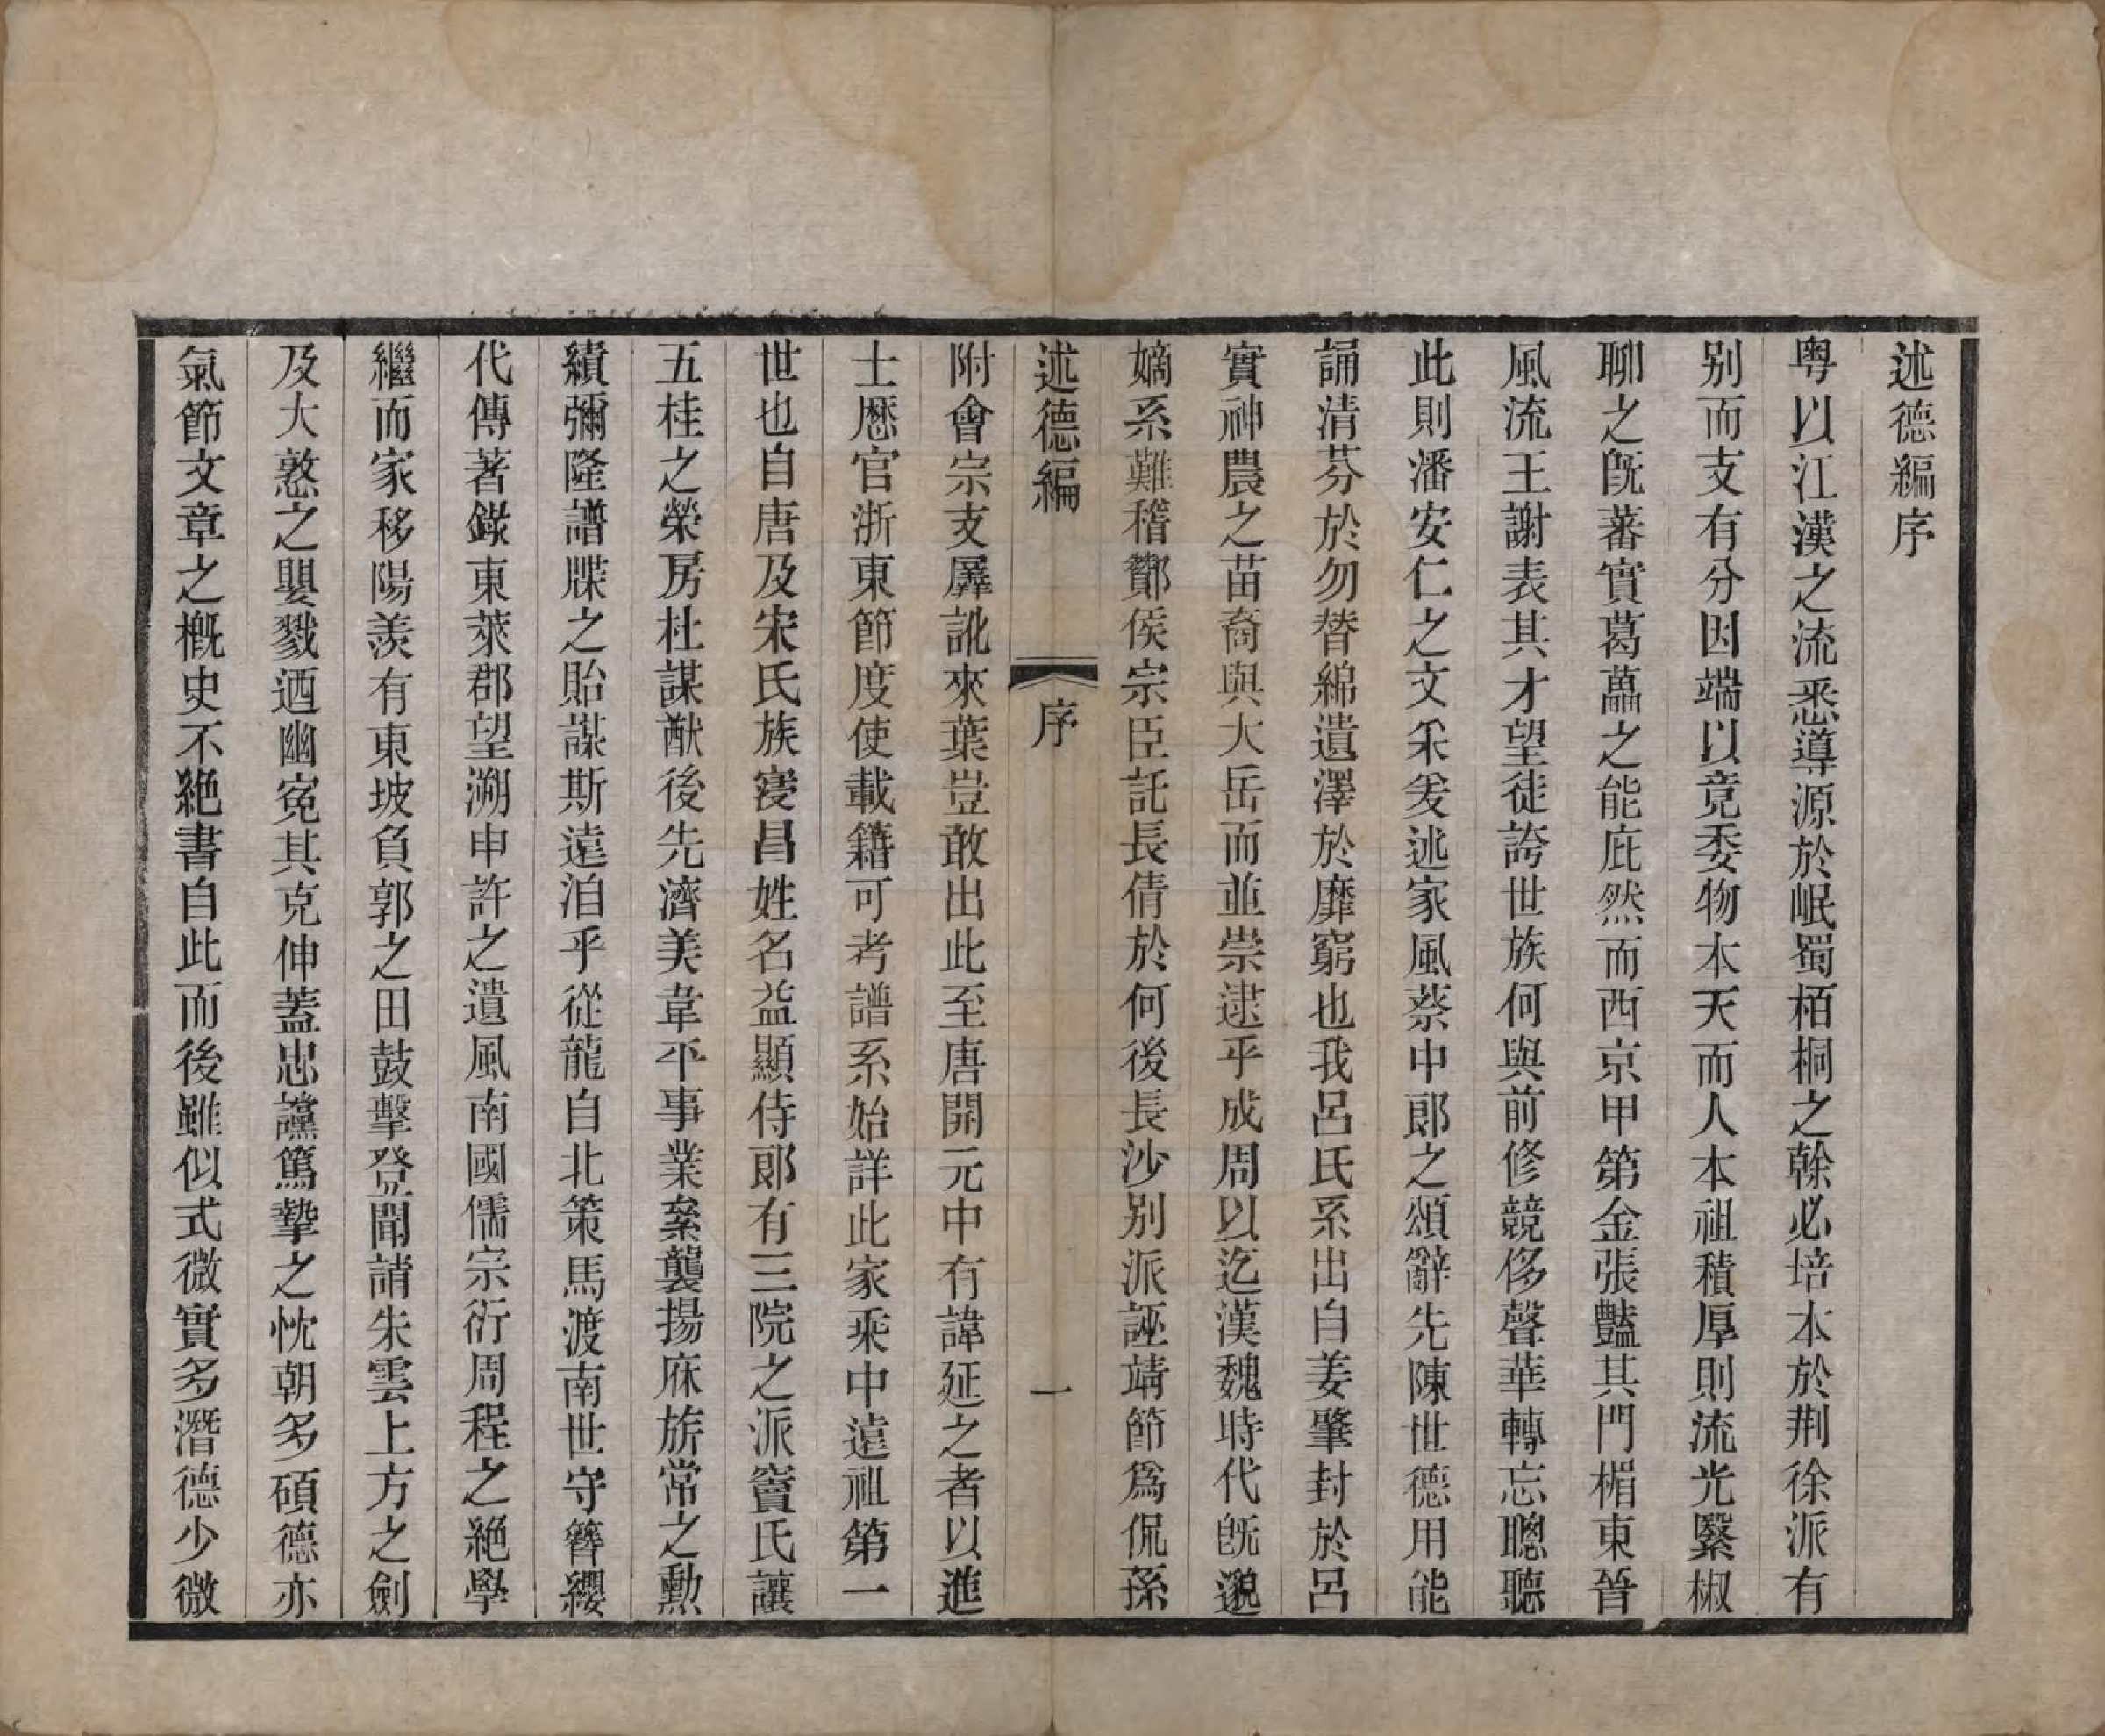 述德編序
粤以江漢之流悉導源於岷蜀栢桐之榦必培本於荆徐派有
别而支有分因端以竟委物本天而人本祖積厚則流光緊椒
聊之旣蕃實葛藟之能庇然而西京甲第金張豔其門楣東晉
風流王謝表其才望徒誇世族何與前修競侈聲華轉忘聰聽
此則潘安仁之文采爰述家風蔡中郞之頌辭先陳世德用能
誦清芬於勿替綿遺澤於靡窮也我呂氏系出自姜肇封於呂
實神農之苗裔與大岳而並崇逮乎成周以迄漢魏時代旣邈
嫡系難稽酇侯宗臣託長倩於何後長沙别派誣靖節爲侃孫
述德編
序
一
附會宗支羼訛來葉豈敢出此至唐開元中有諱延之者以進
士歴官浙東節度使載籍可考譜系始詳此家乘中遠祖第一
世也自唐及宋氏族寖昌姓名益顯侍郞有三院之派竇氏讓
五桂之榮房杜謀猷後先濟美韋平事業絫襲揚庥旂常之勲
績彌隆譜牒之貽謀斯遠洎乎從龍自北策馬渡南世守簪纓
代傳著錄東萊郡望溯申許之遺風南國儒宗衍周程之絶學
繼而家移陽羨有東坡負郭之田鼓擊登聞請朱雲上方之劍
及大憝之嬰戮迺幽寃其克伸蓋忠讜篤摯之忱朝多碩德亦
氣節文章之槪史不絶書自此而後雖似式微實多潛德少微